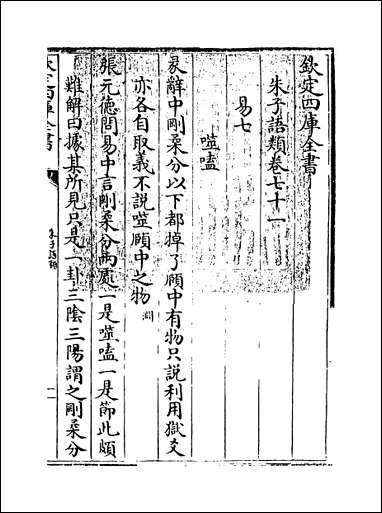 欽定四庫全書
朱子語類卷七十一
易七
噬嗑
彖辭中剛柔分以下都掉了頤中有物只說利用獄爻
亦各自取義不說噬頤中之物 淵
張元德問易中言剛柔分兩處一是噬嗑一是節此頗
難解曰據某所見只是一卦三陰三陽謂之剛柔分